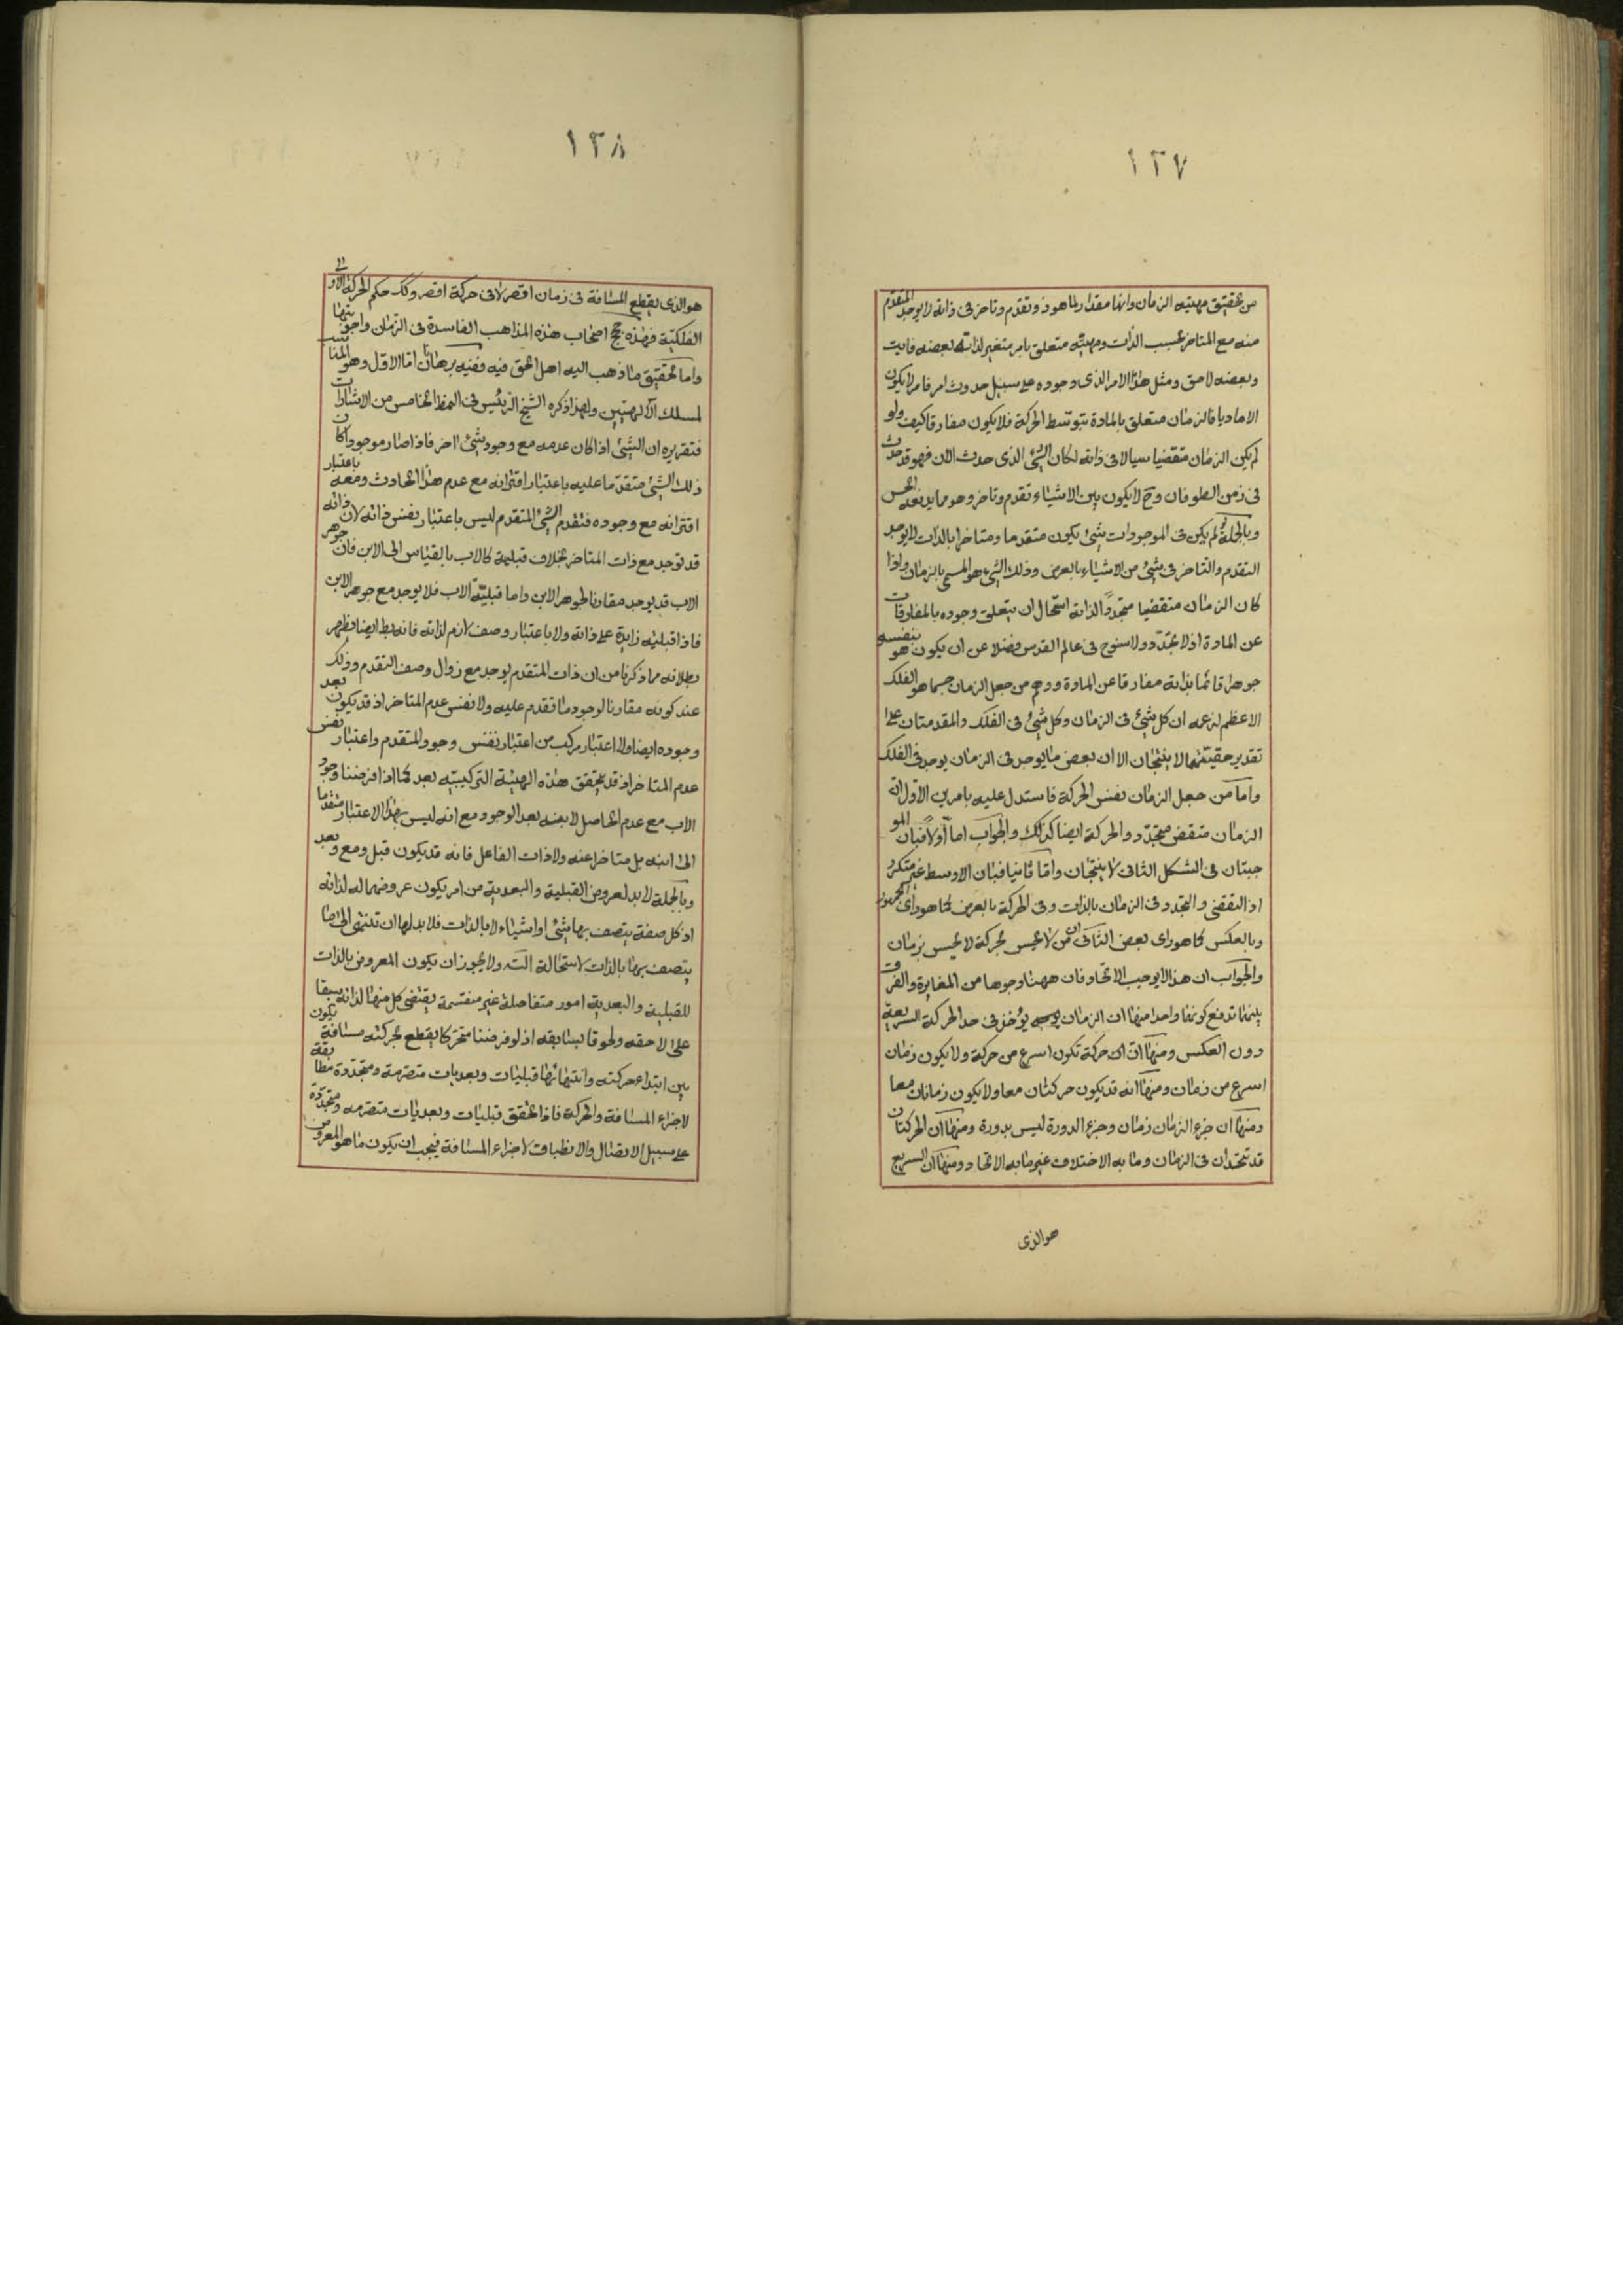 ١٢٧
من تحقيق مهيته الزمان وانها مقدار لما هو ذو تقدم وتاخر فى ذاته لا يوجد المتقدم
منه مع المتاخر بحسب الذات ومهيته متعلق بامر متغير لذاته بعضه فايت
وبعضه لاحق ومثل هذا الامر الذى وجوده على سبيل حدوث امر فامر لا يكون
الا ماديا فالزمان متعلق بالمادة بتوسط الحركة فلا يكون مفارقا كيف ولو
لم يكن الزمان متقضيا سيالا فى ذاته لكان الشئ الذى حدث الان فهو قد حدث
فى زمن الطوفان وح لا يكون بين الاشياء تقدم وتاخر وهو مما يدفعه الحس
وبالجملة لو لم يكن فى الموجودات شئ يكون متقدما ومتاخرا بالذات لا يوجد
التقدم والتاخر فى شئ من الاشياء بالعرض وذلك الشئ هو المسمى بالزمان واذا
كان الزمان متقضيا متجددا لذاته استحال ان يتعلق وجوده بالمفارقات
عن المادة اذ لا تجدد ولا سنوح فى عالم القدس فضلا عن ان يكون هو بنفسه
جوهرا قائما بذاته مفارقا عن المادة ووهم من جعل الزمان جسما هو الفلك
الاعظم لزعمه ان كل شئ فى الزمان وكل شئ فى الفلك والمقدمتان على
تقدير حقيتهما لا ينتجان الا ان بعض ما يوجد فى الزمان يوجد فى الفلك
واما من جعل الزمان نفس الحركة فاستدل عليه بامرين الاول ان
الزمان متقض متجدد والحركة ايضا كذلك والجواب اما اولا فبان المو
جبتان فى الشكل الثانى لا ينتجان واما ثانيا فبان الاوسط غير متكرر
اذ التقضى والتجدد فى الزمان بالذات وفى الحركة بالعرض كما هو راى الجمهور
وبالعكس كما هو راى بعض الثانى ان من لا يحس بحركة لا يحس بزمان
والجواب ان هذا لا يوجب الاتحاد فان ههنا وجوها من المغايرة والفرق
بينهما تدفع كونهما واحدا منها ان الزمان يؤخذ فى حد الحركة السريعة
دون العكس ومنها ان حركة تكون اسرع من حركة ولا يكون زمان
اسرع من زمان ومنها انه قد يكون حركتان معا ولا يكون زمانان معا
ومنها ان جزء الزمان زمان وجزء الدورة ليس بدورة ومنها ان الحركتان
قد تتحدان فى الزمان وما به الاختلاف غير ما به الاتحاد ومنها ان السريع
هو الذى
١٢٨
هو الذى يقطع المسافة فى زمان اقصر لا فى حركة اقصر وكك حكم الحركة الاولى
الفلكية فهذه حجج اصحاب هذه المذاهب الفاسدة فى الزمان واجوبتها
واما تحقيق ما ذهب اليه اهل الحق فيه ففيه برهانان اما الاول وهو المناسب
لمسلك الالهيين ولهذا ذكره الشيخ الرئيس فى النمط الخامس من الاشارات
فتقريره ان الشئ اذا كان عدمه مع وجود شئ اخر فاذا صار موجودا كان
ذلك الشئ متقدما عليه باعتبار اقترانه مع عدم هذا الحادث ومعه باعتبار
اقترانه مع وجوده فتقدم الشئ المتقدم ليس باعتبار نفس ذاته لان ذاته
قد توجد مع ذات المتاخر بخلاف قبليته كالاب بالقياس الى الابن فان جوهر
الاب قد يوجد مقارنا لجوهر الابن واما قبلية الاب فلا يوجد مع جوهر الابن
فاذا قبليته زايدة على ذاته ولا باعتبار وصف لازم لذاته فانه ايضا يظهر
بطلانه مما ذكرنا من ان ذات المتقدم يوجد مع زوال وصف التقدم وذلك
عند كونه مقارنا لوجود ما تقدم عليه ولا نفس عدم المتاخر اذ قد يكون بعد
وجوده ايضا ولا اعتبار مركب من اعتبار نفس وجود المتقدم واعتبار نفس
عدم المتاخر اذ قد يتحقق هذه الهيئة التركيبية بعد كما اذا فرضنا وجود
الاب مع عدم الحاصل لابنه بعد الوجود مع انه ليس بهذا الاعتبار متقدما
الى ابنه بل متاخرا عنه ولا ذات الفاعل فانه قد يكون قبل ومع وبعد
وبالجملة لا بد لعروض القبلية والبعدية من امر يكون عروضهما له لذاته
اذ كل صفة يتصف بها شئ او اشياء لا بالذات فلا بد لها ان تنتهى الى ما
يتصف بها بالذات لاستحالة التسه ولا يجوز ان يكون المعروض بالذات
للقبلية والبعدية امور متفاصلة غير منقسمة يقتضى كل منها لذاته سبقا
على لاحقه ولحوقا بسابقه اذ لو فرضنا متحركا يقطع بحركته مسافة يكون
بين ابتداء حركته وانتهائها قبليات وبعديات متصرمة ومتجددة مطابقة
لاجزاء المسافة والحركة فاذا تحقق قبليات وبعديات متصرمة ومتجددة
على سبيل الاتصال والانطباق لاجزاء المسافة فيجب ان يكون ما هو المعروض